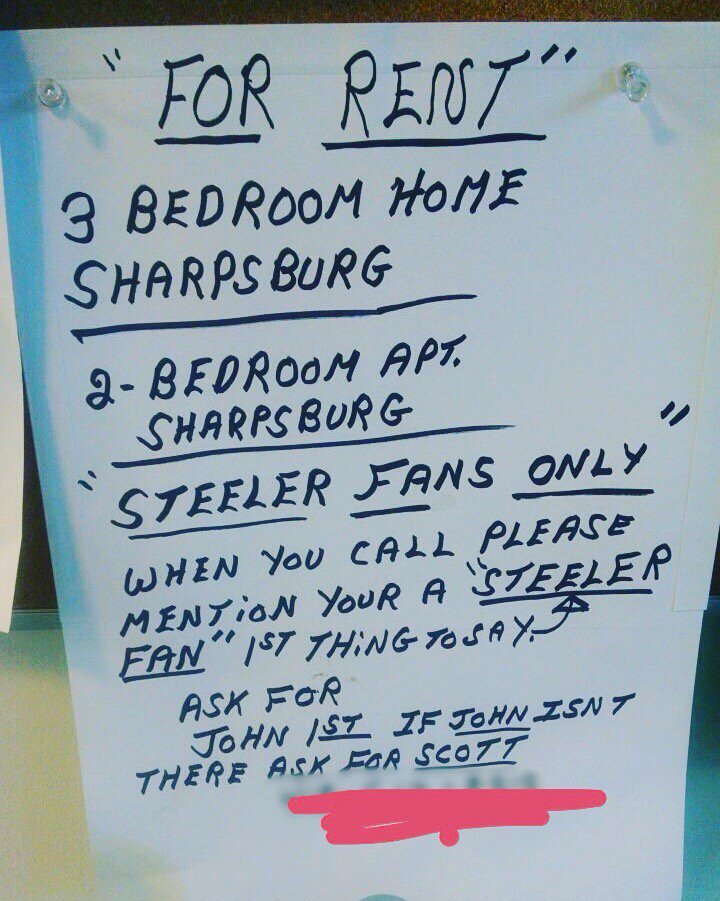 "FOR RENT"
3 BEDROOM HOME
SHARPSBURG
2- BEDROOM APT.
SHARPSBURG
"STEELER FANS ONLY"
WHEN YOU CALL PLEASE
MENTION YOUR A "STEELER
FAN" 1ST THING TO SAY.
ASK FOR
JOHN 1ST IF JOHN ISNT
THERE ASK FOR SCOTT